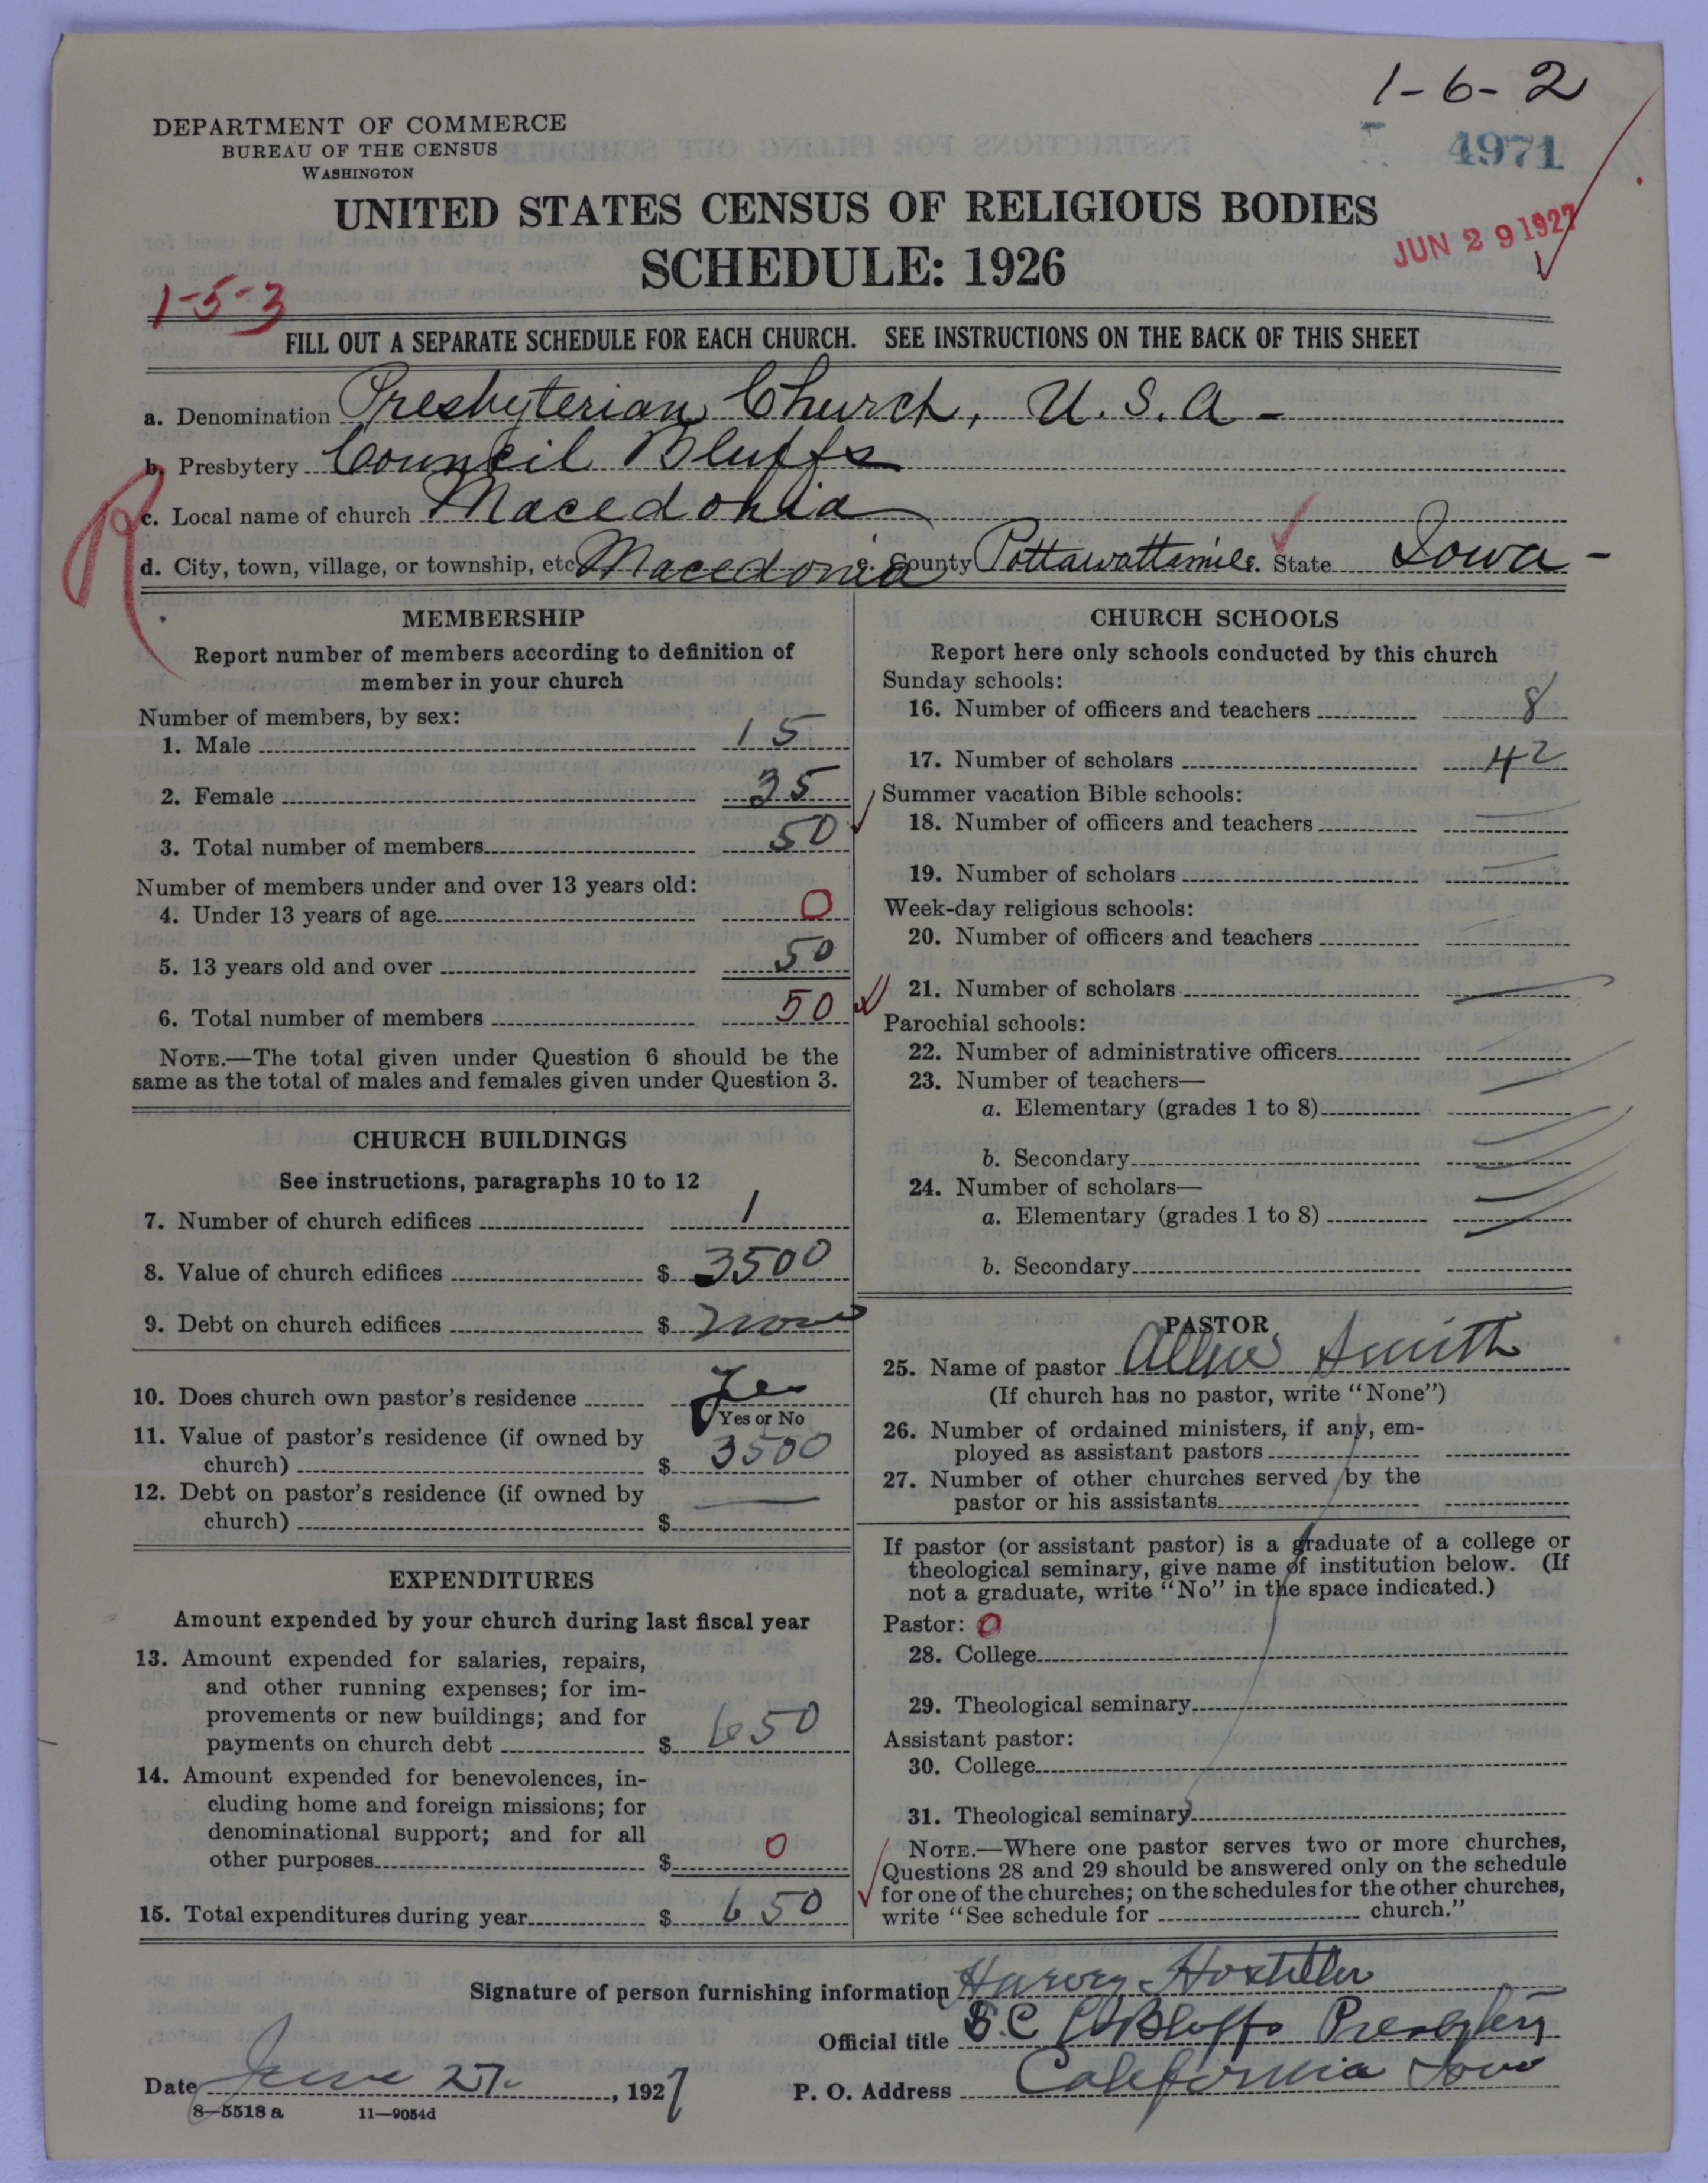 1-6-2
DEPARTMENT OF COMMERCE
BUREAU OF THE CENSUS
WASHINGTON
4971
UNITED STATES CENSUS OF RELIGIOUS BODIES
SCHEDULE: 1926
JUN 29 1927
1-5-3
FILL OUT A SEPARATE SCHEDULE FOR EACH CHURCH. SEE INSTRUCTIONS ON THE BACK OF THIS SHEET
a. Denomination Presbyterian Church, U.S.A-
b. Presbytery Council Bluffs
R
c. Local name of church Macedonia
d. City, town, village, or township, etc. Macedonia e. County Pottawattamie f. State Iowa-
MEMBERSHIP
Report number of members according to definition of
member in your church
Number of members, by sex:
1. Male 15
2. Female 35
3. Total number of members 50
Number of members under and over 13 years old:
4. Under 13 years of age 0
5. 13 years old and over 50
6. Total number of members 50
NOTE.—The total given under Question 6 should be the
same as the total of males and females given under Question 3.
CHURCH BUILDINGS
See instructions, paragraphs 10 to 12
7. Number of church edifices 1
8. Value of church edifices $ 3500
9. Debt on church edifices $ none
10. Does church own pastor's residence Yes
Yes or No
11. Value of pastor's residence (if owned by
church) $ 3500
12. Debt on pastor's residence (if owned by
church) $ —
EXPENDITURES
Amount expended by your church during last fiscal year
13. Amount expended for salaries, repairs,
and other running expenses; for im-
provements or new buildings; and for
payments on church debt $ 650
14. Amount expended for benevolences, in-
cluding home and foreign missions; for
denominational support; and for all
other purposes $ 0
15. Total expenditures during year $ 650
CHURCH SCHOOLS
Report here only schools conducted by this church
Sunday schools:
16. Number of officers and teachers 8
17. Number of scholars 42
Summer vacation Bible schools:
18. Number of officers and teachers
19. Number of scholars
Week-day religious schools:
20. Number of officers and teachers
21. Number of scholars
Parochial schools:
22. Number of administrative officers
23. Number of teachers—
a. Elementary (grades 1 to 8)
b. Secondary
24. Number of scholars—
a. Elementary (grades 1 to 8)
b. Secondary
PASTOR
25. Name of pastor Smith
(If church has no pastor, write "None")
26. Number of ordained ministers, if any, em-
ployed as assistant pastors
27. Number of other churches served by the
pastor or his assistants
If pastor (or assistant pastor) is a graduate of a college or
theological seminary, give name of institution below. (If
not a graduate, write "No" in the space indicated.)
Pastor: 0
28. College
29. Theological seminary
Assistant pastor:
30. College
31. Theological seminary
NOTE.—Where one pastor serves two or more churches,
Questions 28 and 29 should be answered only on the schedule
for one of the churches; on the schedules for the other churches,
write "See schedule for church."
Signature of person furnishing information Harvey Hostetler
Official title S.C. Bluffs Presbytery
Date June 27, 1927 P. O. Address California Iowa
8—5518 a 11—9054d